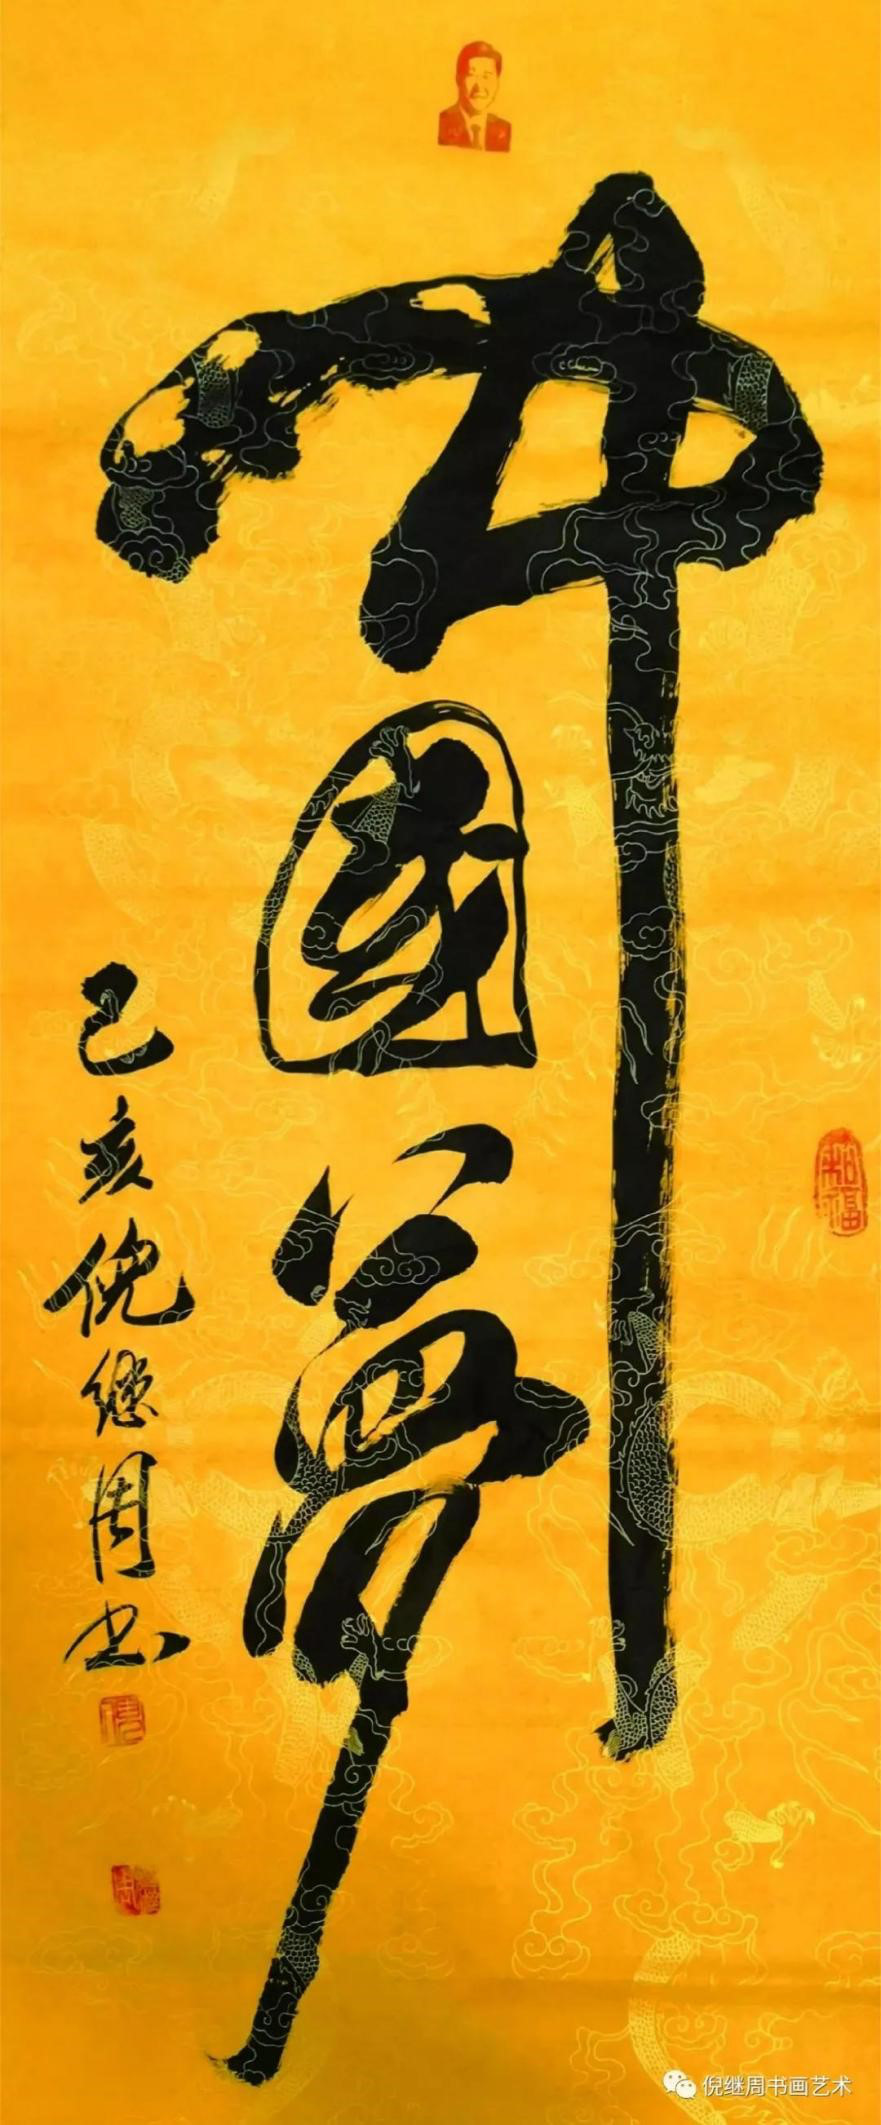 中國夢
己亥倪继周书
倪继周书画艺术